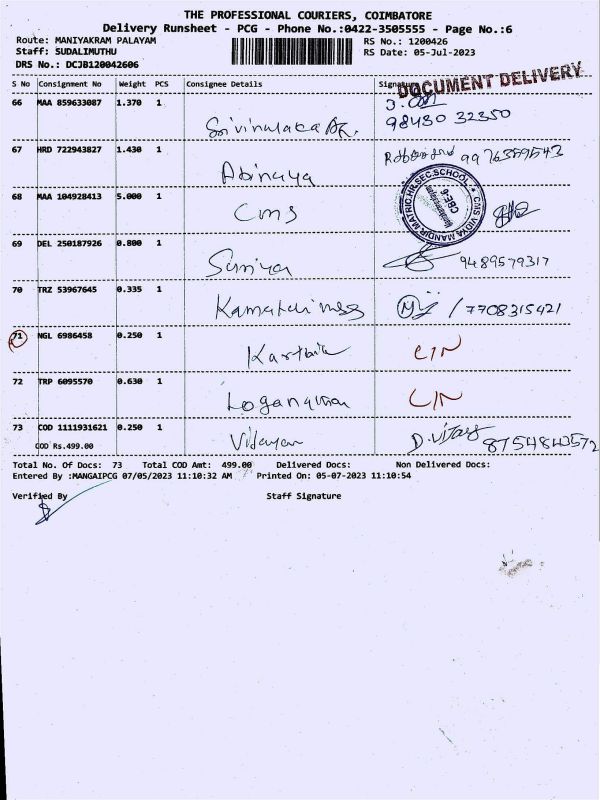 THE PROFESSIONAL COURIERS, COIMBATORE
Delivery Runsheet - PCG - Phone No.:0422-3505555 - Page No.:6
Route: MANIYAKRAM PALAYAM RS No.: 1200426
Staff: SUDALIMUTHU RS Date: 05-Jul-2023
DRS No.: DCJB120042606
S No Consignment No Weight PCS Consignee Details Signature
DOCUMENT DELIVERY
66 MAA 859633087 1.370 1
98430 32350
67 HRD 722943827 1.430 1 Abinaya
68 MAA 104928413 5.000 1 CMS
CMS VIDYA MANDIR MATRIC.HR.SEC.SCHOOL
CBE-6
69 DEL 250187926 0.800 1 9489579317
70 TRZ 53967645 0.335 1 / 7708315421
71 NGL 6986458 0.250 1 Karthik
72 TRP 6095570 0.630 1
73 COD 1111931621 0.250 1 Vijayan D.Vijay 8754840572
COD Rs.499.00
Total No. Of Docs: 73 Total COD Amt: 499.00 Delivered Docs: Non Delivered Docs:
Entered By :MANGAIPCG 07/05/2023 11:10:32 AM Printed On: 05-07-2023 11:10:54
Verified By Staff Signature